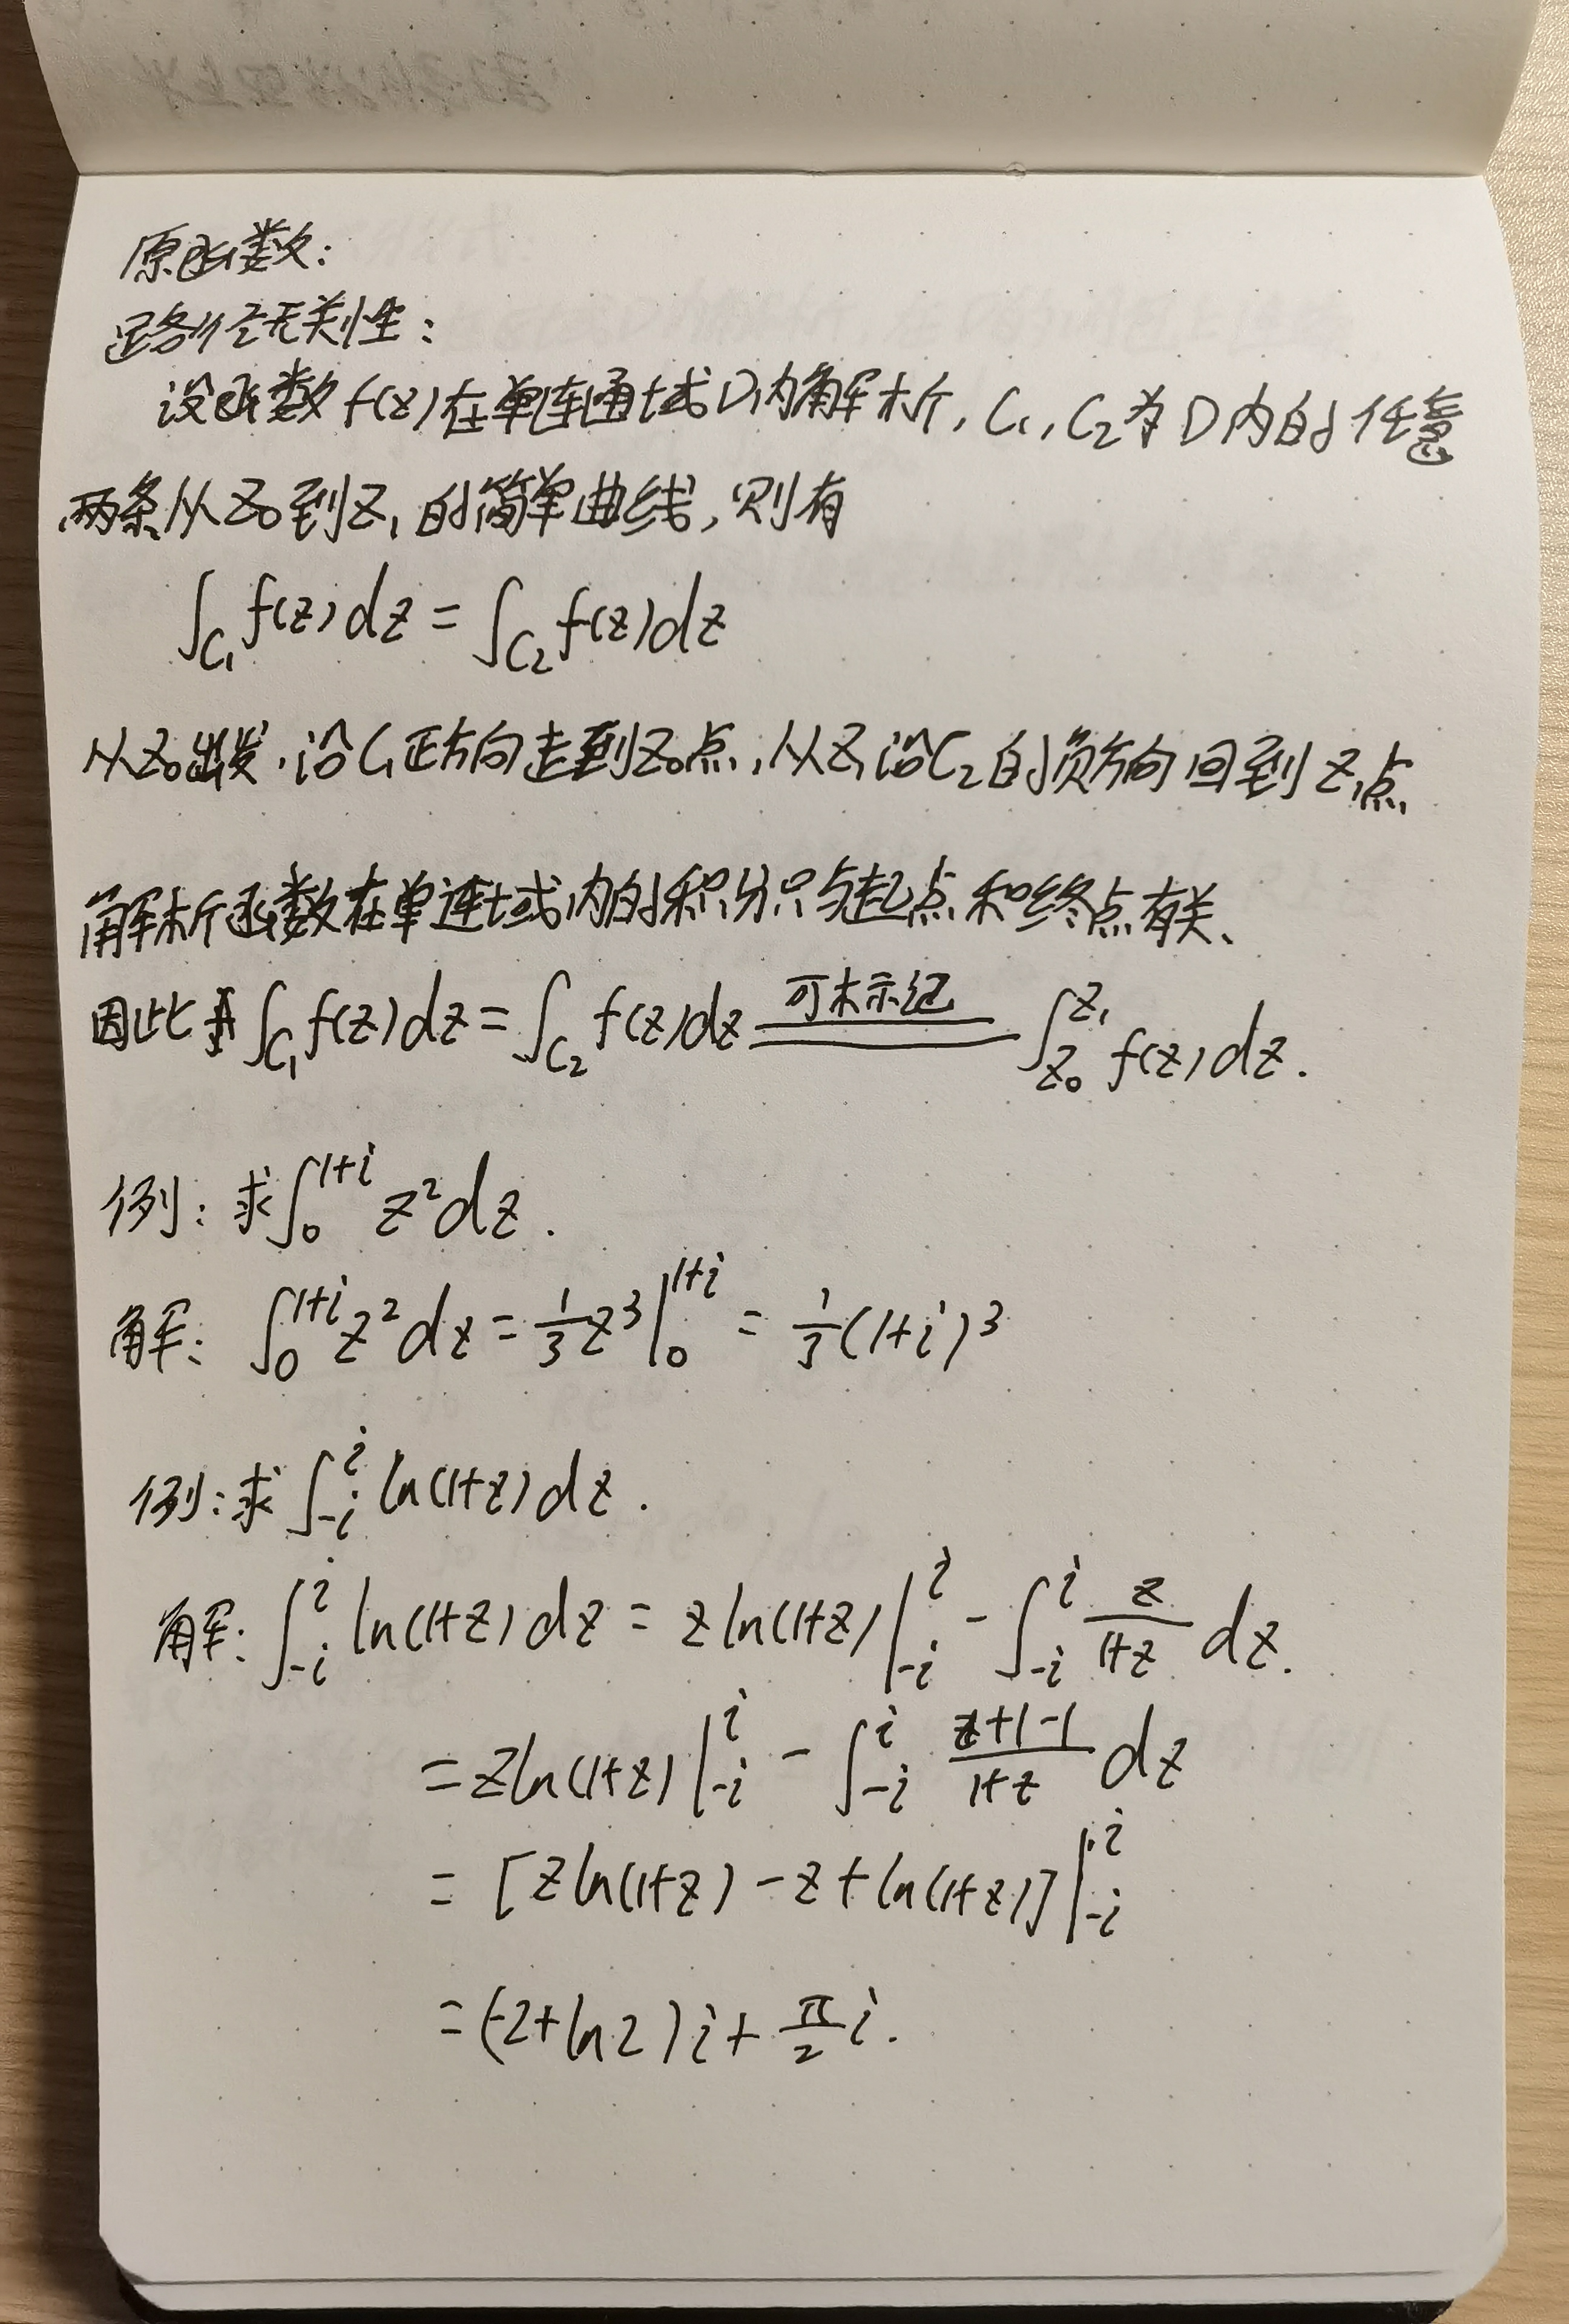 原函数:
路径无关性:
设函数f(z)在单连通域D内解析,C₁,C₂为D内的任意
两条从z₀到z₁的简单曲线,则有
∫_{C₁} f(z)dz = ∫_{C₂} f(z)dz
从z₀出发,沿C₁正方向走到z₀点,从z₁沿C₂的负方向回到z₁点
解析函数在单连域内的积分只与起点和终点有关、
因此 ∫_{C₁} f(z)dz = ∫_{C₂} f(z)dz \xlongequal{可标记} ∫_{z₀}^{z₁} f(z)dz.
例: 求∫_0^{1+i} z²dz.
解: ∫_0^{1+i} z²dz = \frac{1}{3}z³|_0^{1+i} = \frac{1}{3}(1+i)³
例: 求∫_{-i}^{i} ln(1+z)dz.
解: ∫_{-i}^{i} ln(1+z)dz = zln(1+z)|_{-i}^{i} - ∫_{-i}^{i} \frac{z}{1+z} dz.
= zln(1+z)|_{-i}^{i} - ∫_{-i}^{i} \frac{z+1-1}{1+z} dz
= [zln(1+z) - z + ln(1+z)]|_{-i}^{i}
= (-2+ln2)i + \frac{π}{2}i.